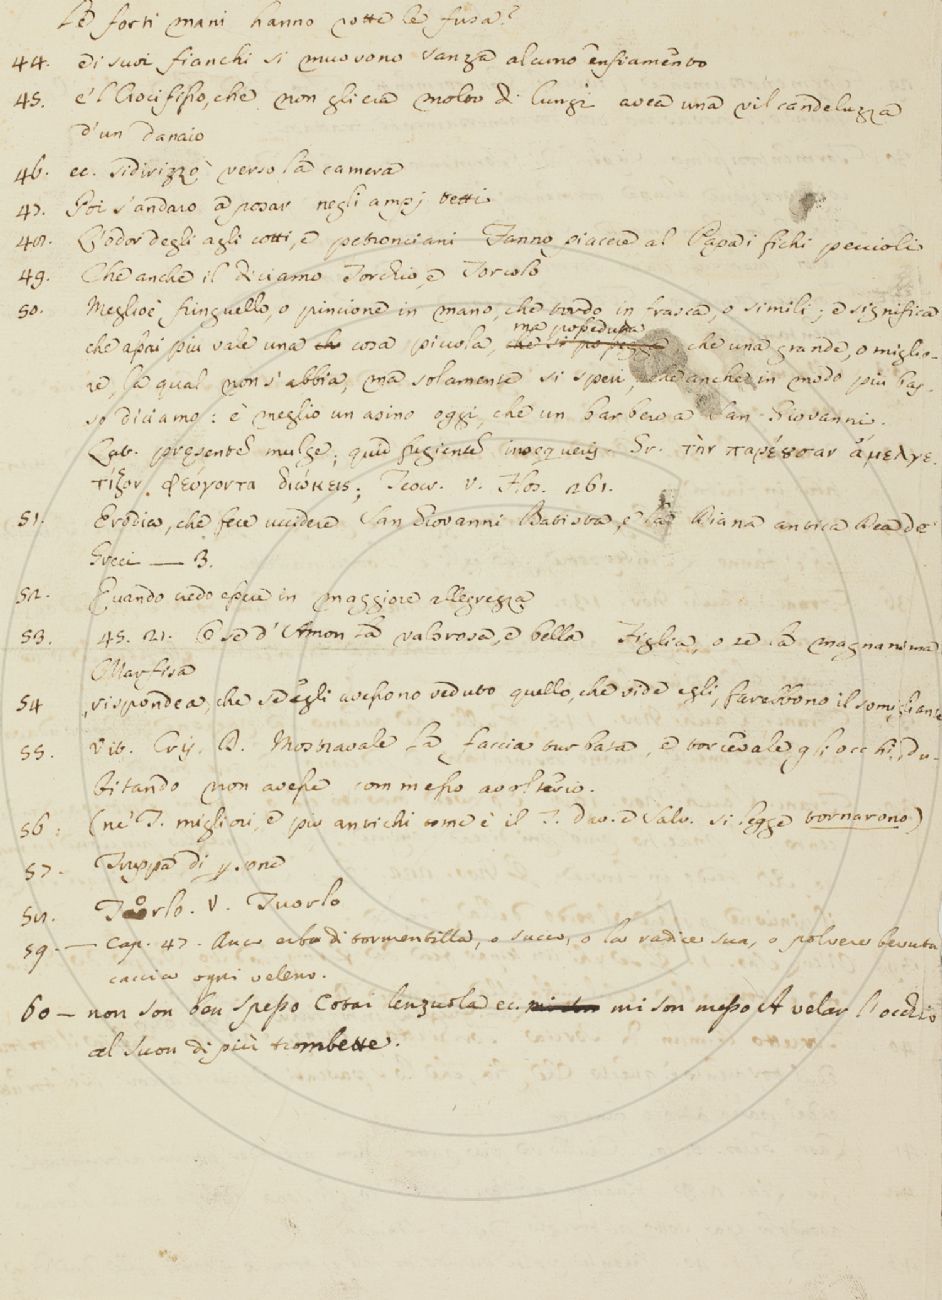 Le forti mani hanno rotte le fusa?
44. e i suoi fianchi si muovono sanza alcuno enfiamento
45. e 'l Crocifisso, che non gli era molto di lungi avea una vil candeluzza
d'un danaio
46. ec. si dirizzò verso la camera
47. Poi s'andaro a posar negli ampj letti
48. L'odor degli agli cotti, e petronciani Fanno piacere al Papa i fichi peccioli
49. Che anche il diciamo Torchio, e Torcolo
50. Meglio è fringuello, o pincione in mano, che tordo in frasca, o simili; e significa
che assai più vale una cosa piccola, ma posseduta che una grande, o miglio-
re, la qual non s'abbia, ma solamente si speri, che anche in modo più bas-
so diciamo: è meglio un asino oggi, che un barbero a San Giovanni.
Lat. presentem mulge; quid fugientem insequeris. Gr. τὴν παρέουσαν ἄμελγε.
τί τὸν φεύγοντα διώκεις; Teocr. v. Flos. 261.
51. Erodica, che fece uccidere San Giovanni Batista, e la Diana antica Dea de'
Greci — 3.
52. Quando credo essere in maggiore allegrezza
53. 45. 21. O se d'Amon la valorosa, e bella Figlia, o se la magnanima
Marfisa
54 rispondea, che se egli avessono veduto quello, che vide egli, farebbono il somigliante
55. Vit. Crij. D. Mostravale la faccia turbata, e torcevale gli occhi, du-
bitando non avesse commesso avolterio.
56. (ne' T. migliori, e più antichi come è il T. Dav. e Salv. si legge tornarono)
57. Truppa di persone
58. Torlo. V. Tuorlo
59. — Cap. 47. Anco erba di tormentilla, o succo, o la radice sua, o polvere bevuta
caccia ogni veleno.
60 — non son ben spesso Cotai lenzuola ec. mi son messo A velar l'occhio
al suon di più trombette.